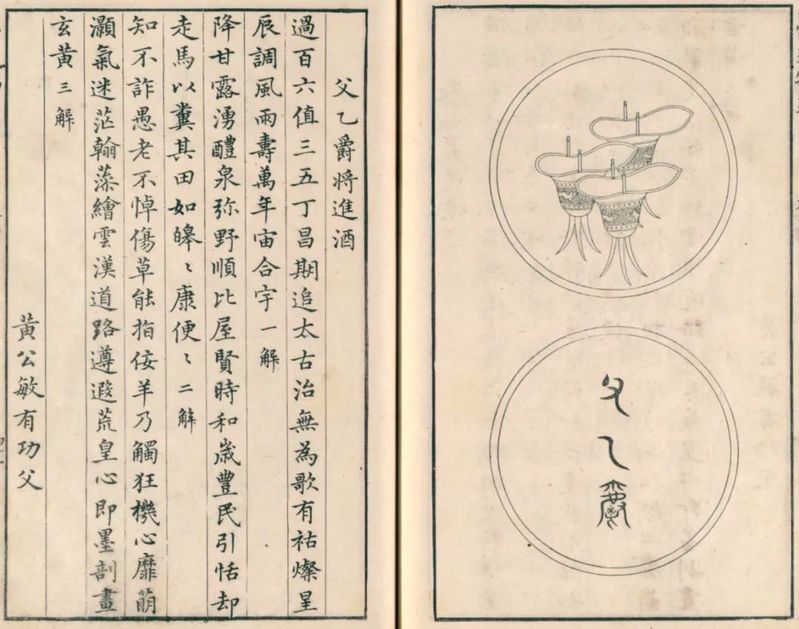 父乙爵
父乙爵將進酒
過百六值三五丁昌期追太古治無為歌有祜燦星
辰調風雨壽萬年宙合宇一解
降甘露湧醴泉弥野順比屋賢時和歲豐民引恬却
走馬以糞其田如皞〻康便〻二解
知不詐愚老不悼傷草能指佞羊乃觸狂機心靡萌
灝氣迷茫翰藻繪雲漢道路遵遐荒皇心即墨剖畫
玄黃三解
黃公敏有功父